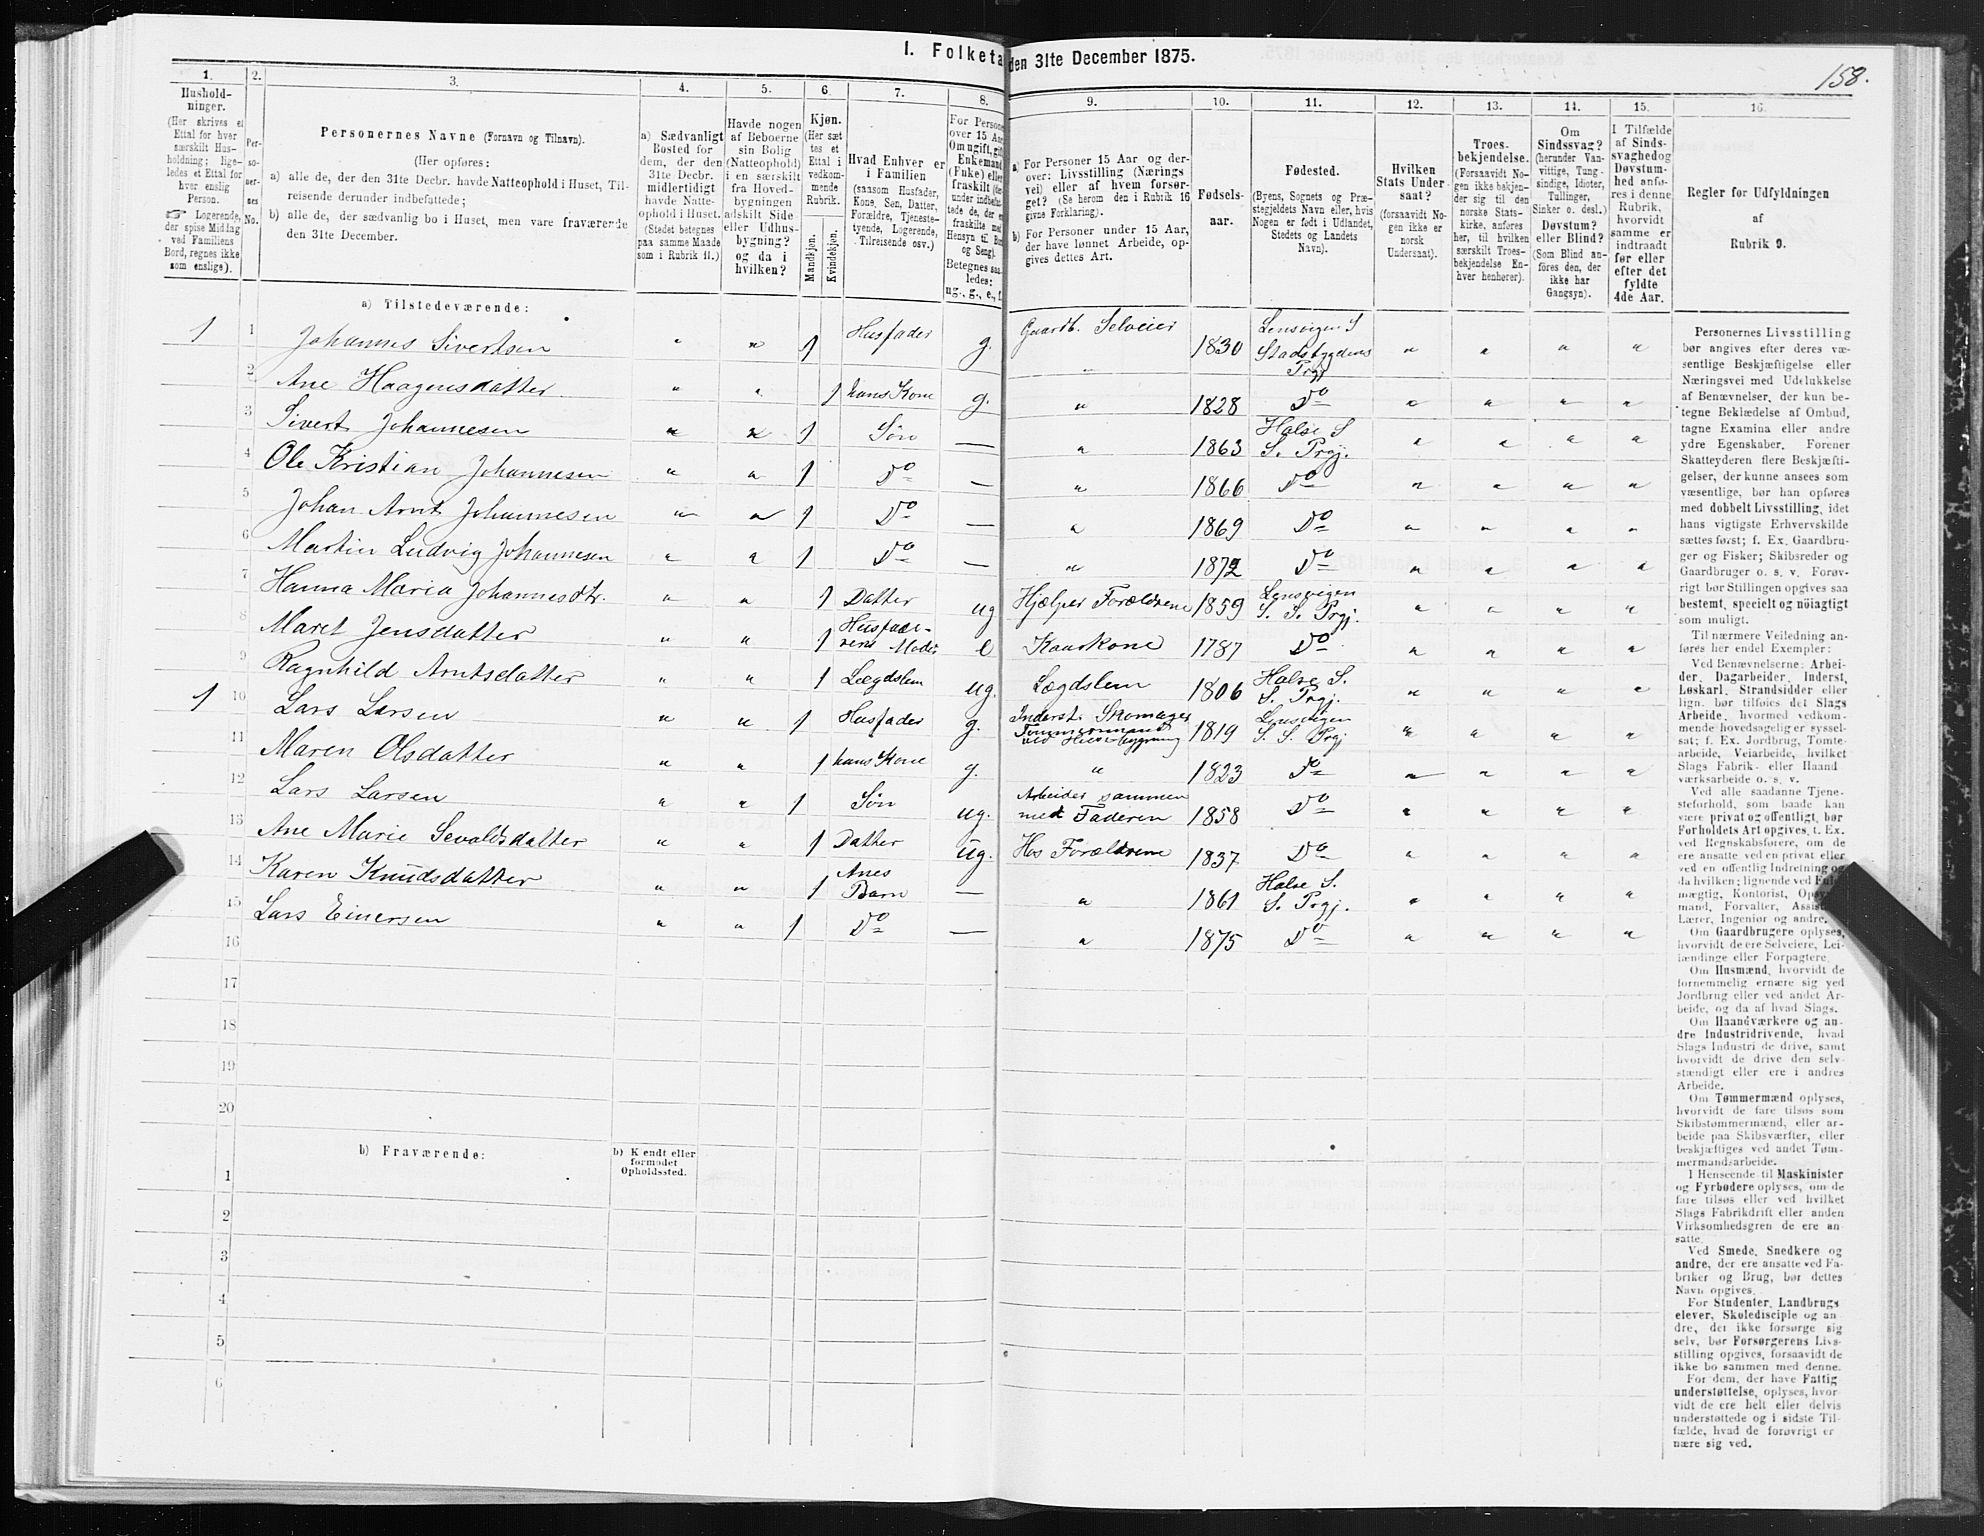 I. Folketa den 31te December 1875.
158.
1. 2. 3. 4. 5. 6. 7. 8. 9. 10. 11. 12. 13. 14. 15. 16.
Hushold-
ninger.
(Her skrives et
Ettal for hver
særskilt Hus-
holdning; lige-
ledes et Ettal for
hver enslig
Person.
☞ Logerende,
der spise Middag
ved Familiens
Bord, regnes ikke
som enslige).
Per-
so-
ner-
nes
No.
Personernes Navne (Fornavn og Tilnavn).
(Her opføres:
a) alle de, der den 31te Decbr. havde Natteophold i Huset, Til-
reisende derunder indbefattede;
b) alle de, der sædvanlig bo i Huset, men vare fraværende
den 31te December.
a) Sædvanligt
Bosted for
dem, der den
31te Decbr.
midlertidigt
havde Natte-
ophold i Huset.
(Stedet betegnes
paa samme Maade
som i Rubrik 11.)
Havde nogen
af Beboerne
sin Bolig
(Natteophold)
i en særskilt
fra Hoved-
bygningen
adskilt Side
eller Udhus-
bygning?
og da i
hvilken?
Kjøn.
(Her sæt
tes et
Ettal i
vedkom-
mende
Rubrik.
Mandkjøn.
Kvindekjøn.
Hvad Enhver er
i Familien
(saasom Husfader,
Kone, Søn, Datter,
Forældre, Tjeneste-
tyende, Logerende,
Tilreisende osv.)
For Person
over 15 Aar
Om ugift, gift
Enkemand
(Enke) eller
fraskilt (der-
under indbefat-
tede de, der er
fraskilte med
Hensyn til Bo
og Seng).
Betegnes saa-
ledes:
ug., g., e., f.
a) For Personer 15 Aar og der-
over: Livsstilling (Nærings
vei) eller af hvem forsør-
get? (Se herom den i Rubrik 16
givne Forklaring).
b) For Personer under 15 Aar,
der have lønnet Arbeide, op-
gives dettes Art.
Fødsels-
aar.
Fødested.
(Byens, Sognets og Præ-
stegjeldets Navn eller, hvis
Nogen er født i Udlandet,
Stedets og Landets
Navn).
Hvilken
Stats Under
saat?
(forsaavidt No-
gen ikke er
norsk
Undersaat).
Troes-
bekjendelse.
(Forsaavidt No-
gen ikke bekjen-
der sig til den
norske Stats-
kirke, anføres
her, til hvilken
særskilt Troes-
bekjendelse En-
hver henhører).
Om
Sindssvag?
(herunder Van-
vittige, Tung-
sindige, Idioter,
Tullinger,
Sinker o. desl.)
Døvstum?
eller Blind?
(Som Blind an-
føres den, der
ikke har
Gangsyn).
I Tilfælde
af Sinds-
svaghed og
Døvstum-
hed anfø-
res i denne
Rubrik,
hvorvidt
samme er
indtraadt
før eller
efter det
fyldte
4de Aar.
Regler for Udfyldningen
af
Rubrik 9.
a) Tilstedeværende:
1 1 Johannes Sivertsen " " 1 Husfader g. Gaardb. Selveier 1830 Lensvigen S Stadsbygdens Prgj " " " "
2 Ane Haagensdatter " " 1 hans Kone g. " 1828 Do " " " "
3 Sivert Johannesen " " 1 Søn — " 1863 Halse S S. Prgj. " " " "
4 Ole Kristian Johannesen " " 1 Do — " 1866 Do " " " "
5 Johan Arnt Johannesen " " 1 Do — " 1869 Do " " " "
6 Martin Ludvig Johannesen " " 1 Do — " 1872 Do " " " "
7 Hanna Maria Johannesdtr. " " 1 Datter ug Hjælper Forældrene 1859 Lensvigen S. S. Prgj. " " " "
8 Maret Jensdatter " " 1 Husfade- rens Moder e Kaarkone 1787 Do " " " "
9 Ragnhild Arntsdatter " " 1 Lægdslem ug. Lægdslem 1806 Halse S. S. Prgj. " " " "
1 10 Lars Larsen " " 1 Husfader g. Inderst. Skomager Tømmermand ved Husebygning 1819 Lensvigen S. S. Prgj " " " "
11 Maren Olsdatter " " 1 hans Kone g. " 1823 Do " " " "
12 Lars Larsen " " 1 Søn ug. Arbeider sammen med Faderen 1858 Do " " " "
13 Ane Marie Sevaldsdatter " " 1 Datter ug. Hos Forældrene 1837 Do " " " "
14 Karen Knudsdatter " " 1 Anes Barn — " 1861 Halse S. S. Prgj. " " " "
15 Lars Einersen " " 1 Do — " 1875 Do " " " "
16
17
18
19
20
b) Fraværende:
b) Kendt eller
formodet
Opholdssted.
1
2
3
4
5
6
Personernes Livsstilling
bør angives efter deres væ-
sentlige Beskjæftigelse eller
Næringsvei med Udelukkelse
af Benævnelser, der kun be-
tegne Beklædelse af Ombud,
tagne Examina eller andre
ydre Egenskaber. Forener
Skatteyderen flere Beskjæfti-
gelser, der kunne ansees som
væsentlige, bør han opføres
med dobbelt Livsstilling, idet
hans vigtigste Erhvervskilde
sættes først; f. Ex. Gaardbru-
ger og Fisker; Skibsreder og
Gaardbruger o. s. v. Forøv-
rigt bør Stillingen opgives saa
bestemt, specielt og nöiagtigt
som muligt.
Til nærmere Veiledning an-
føres her endel Exempler:
Ved Benævnelserne: Arbei-
der, Dagarbeider, Inderst,
Løskarl, Strandsidder eller
lign. bør tilføies det Slags
Arbeide, hvormed vedkom-
mende hovedsagelig er syssel-
sat; f. Ex. Jordbrug, Tomte-
arbeide, Veiarbeide, hvilket
Slags Fabrik- eller Haand
værksarbeide o. s. v.
Ved alle saadanne Tjene-
steforhold, som baade kan
være privat og offentligt, bør
Forholdets Art opgives, t. Ex.
ved Regnskabsførere, om de
ere ansatte ved en privat eller
ved en offentlig Indretning og
da hvilken; lignende ved Ful-
mægtig, Kontorist, Opsyns-
mand, Forvalter, Assistent,
Lærer, Ingeniør og andre.
Om Gaardbrugere oplyses,
hvorvidt de ere Selveiere, Lei-
lændinge eller Forpagtere.
Om Husmænd, hvorvidt de
fornemmelig ernære sig ved
Jordbrug eller ved andet Ar-
beide, og da af hvad Slags.
Om Haandværkere og an-
dre Industridrivende, hvad
Slags Industri de drive, samt
hvorvidt de drive den selv-
stændigt eller ere i andres
Arbeide.
Om Tømmermænd oplyses,
hvorvidt de fare tilsøs som
Skibstømmermænd, eller ar-
beide paa Skibsværfter, eller
beskjæftiges ved andet Tøm-
mermandsarbeide.
I Henseende til Maskinister
og Fyrbødere oplyses, om de
fare tilsøs eller ved hvilket
Slags Fabrikdrift eller anden
Virksomhedsgren de ere an-
satte.
Ved Smede, Snedkere og
andre, der ere ansatte ved Fa-
briker og Brug, bør dettes
Navn opgives.
For Studenter, Landbrugs
elever, Skoledisciple og an-
dre, der ikke forsørge sig
selv, bør Forsørgerens Livs-
stilling opgives, forsaavidt de
ikke bo sammen med denne.
For dem, der have Fattig
understøttelse, oplyses, hvor-
vidt de ere helt eller delvis
understøttede og i sidste Til-
fælde, hvad de forøvrigt er
nære sig ved.